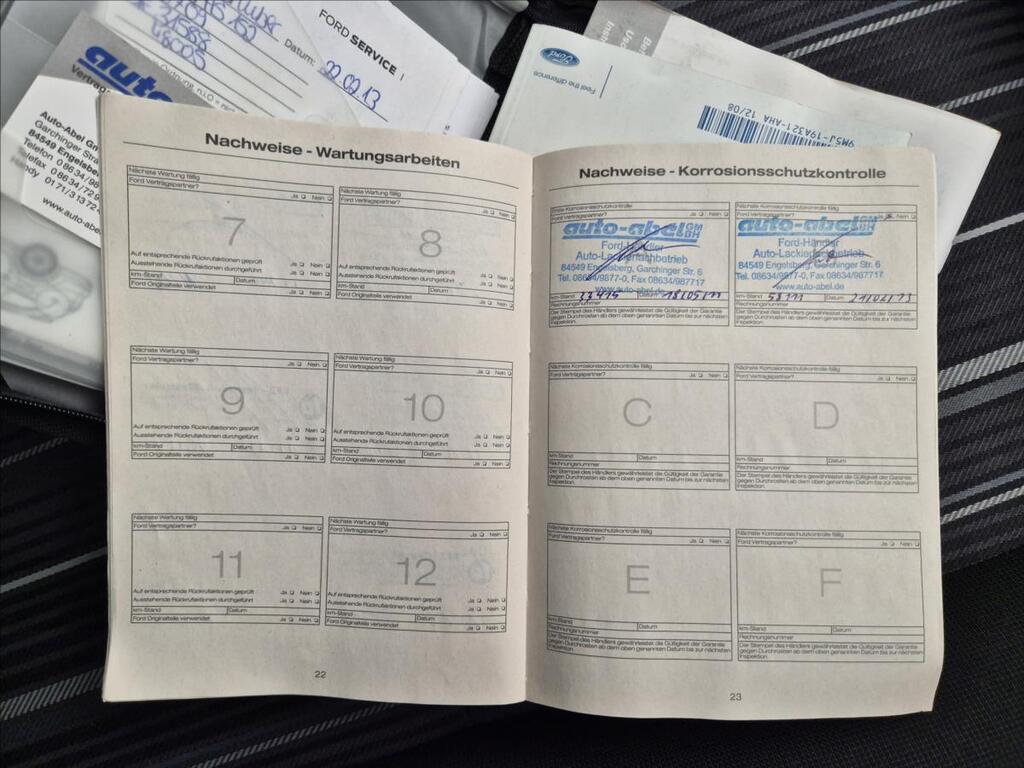 FORD SERVICE
Datum: 22.02.13
auto
Auto-Abel
Garchinger
84549 Engelsbe
Telefon 0 86 34/98
Telefax 0 86 34/72 9
Handy 01 71/3 13 72
www.auto-abe
Ford
Feel the difference
9M5J-19A321-AHA 12/08
Nachweise - Wartungsarbeiten
Nächste Wartung fällig
Ford Vertragspartner? Ja Nein
7
Auf entsprechende Rückrufaktionen geprüft Ja Nein
Ausstehende Rückrufaktionen durchgeführt Ja Nein
km-Stand Datum
Ford Originalteile verwendet Ja Nein
Nächste Wartung fällig
Ford Vertragspartner? Ja Nein
8
Auf entsprechende Rückrufaktionen geprüft Ja Nein
Ausstehende Rückrufaktionen durchgeführt Ja Nein
km-Stand Datum
Ford Originalteile verwendet Ja Nein
Nächste Wartung fällig
Ford Vertragspartner? Ja Nein
9
Auf entsprechende Rückrufaktionen geprüft Ja Nein
Ausstehende Rückrufaktionen durchgeführt Ja Nein
km-Stand Datum
Ford Originalteile verwendet Ja Nein
Nächste Wartung fällig
Ford Vertragspartner? Ja Nein
10
Auf entsprechende Rückrufaktionen geprüft Ja Nein
Ausstehende Rückrufaktionen durchgeführt Ja Nein
km-Stand Datum
Ford Originalteile verwendet Ja Nein
Nächste Wartung fällig
Ford Vertragspartner? Ja Nein
11
Auf entsprechende Rückrufaktionen geprüft Ja Nein
Ausstehende Rückrufaktionen durchgeführt Ja Nein
km-Stand Datum
Ford Originalteile verwendet Ja Nein
Nächste Wartung fällig
Ford Vertragspartner? Ja Nein
12
Auf entsprechende Rückrufaktionen geprüft Ja Nein
Ausstehende Rückrufaktionen durchgeführt Ja Nein
km-Stand Datum
Ford Originalteile verwendet Ja Nein
22
Nachweise - Korrosionsschutzkontrolle
Ford Vertragspartner? Ja Nein
auto-abel GMBH
Ford-Händler
Auto-Lackierfachbetrieb
84549 Engelsberg, Garchinger Str. 6
Tel. 08634/9877-0, Fax 08634/987717
www.auto-abel.de
km-Stand Datum 18105111
Rechnungsnummer
Der Stempel des Händlers gewährleistet die Gültigkeit der Garantie
gegen Durchrosten ab dem oben genannten Datum bis zur nächsten
Inspektion.
Nächste Korrosionsschutzkontrolle fällig
Nein
auto-abel GMBH
Ford-Händler
Auto-Lackierfachbetrieb
84549 Engelsberg, Garchinger Str. 6
Tel. 08634/9877-0, Fax 08634/987717
www.auto-abel.de
km-Stand Datum
Rechnungsnummer
Der Stempel des Händlers gewährleistet die Gültigkeit der Garantie
gegen Durchrosten ab dem oben genannten Datum bis zur nächsten
Inspektion.
Nächste Korrosionsschutzkontrolle fällig
Ford Vertragspartner? Ja Nein
C
km-Stand Datum
Rechnungsnummer
Der Stempel des Händlers gewährleistet die Gültigkeit der Garantie
gegen Durchrosten ab dem oben genannten Datum bis zur nächsten
Inspektion.
Nächste Korrosionsschutzkontrolle fällig
Ford Vertragspartner? Ja Nein
D
km-Stand Datum
Rechnungsnummer
Der Stempel des Händlers gewährleistet die Gültigkeit der Garantie
gegen Durchrosten ab dem oben genannten Datum bis zur nächsten
Inspektion.
Nächste Korrosionsschutzkontrolle fällig
Ford Vertragspartner? Ja Nein
E
km-Stand Datum
Rechnungsnummer
Der Stempel des Händlers gewährleistet die Gültigkeit der Garantie
gegen Durchrosten ab dem oben genannten Datum bis zur nächsten
Inspektion.
Nächste Korrosionsschutzkontrolle fällig
Ford Vertragspartner? Ja Nein
F
km-Stand Datum
Rechnungsnummer
Der Stempel des Händlers gewährleistet die Gültigkeit der Garantie
gegen Durchrosten ab dem oben genannten Datum bis zur nächsten
Inspektion.
23